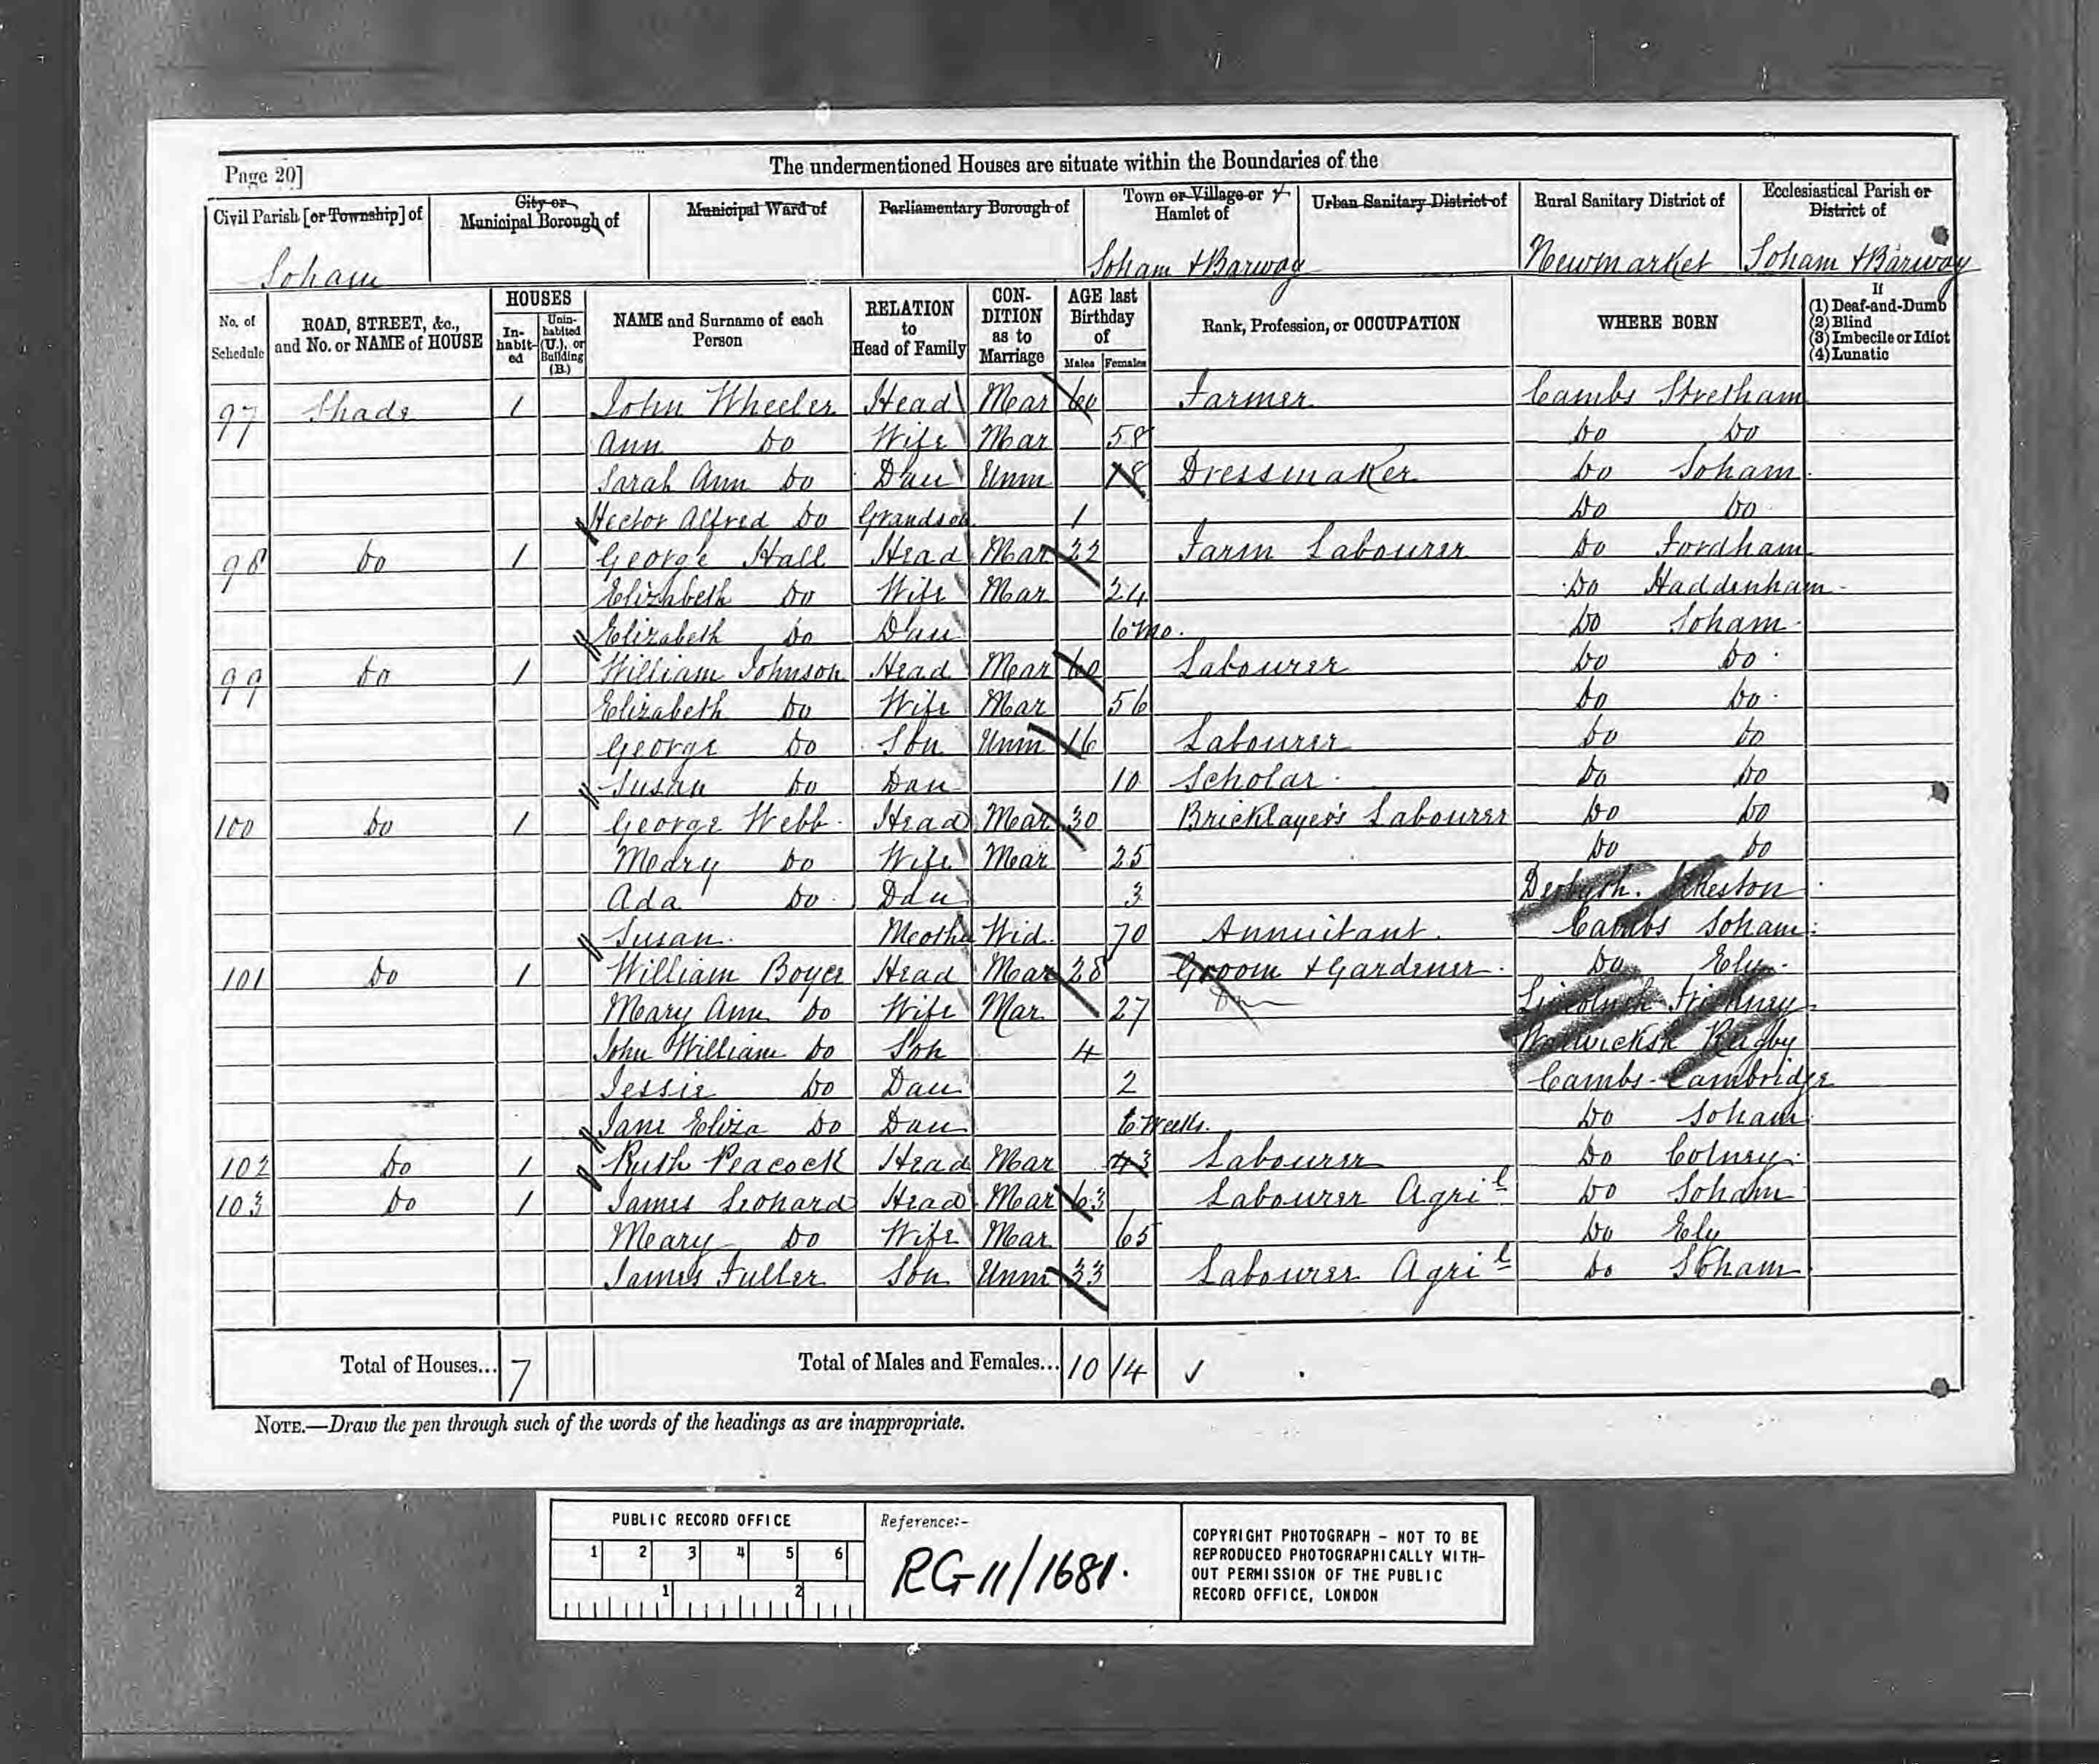 Page 20]
The undermentioned Houses are situate within the Boundaries of the
Civil Parish [or Township] of
City or Municipal Borough of
Municipal Ward of
Parliamentary Borough of
Town or Village or + Hamlet of
Urban Sanitary District of
Rural Sanitary District of
Ecclesiastical Parish or District of
Soham Soham + Barway Newmarket Soham + Barway
No. of Schedule
ROAD, STREET, &c., and No. or NAME of HOUSE
HOUSES
In-habit-ed
Unin-habited (U.), or Building (B.)
NAME and Surname of each Person
RELATION to Head of Family
CON-DITION as to Marriage
AGE last Birthday of
Males Females
Rank, Profession, or OCCUPATION
WHERE BORN
If
(1) Deaf-and-Dumb
(2) Blind
(3) Imbecile or Idiot
(4) Lunatic
97 Shade 1 John Wheeler Head Mar 60 Farmer Cambs Stretham
Ann Do Wife Mar 58 Do Do
Sarah Ann Do Dau Unm 18 Dressmaker Do Soham
Hector Alfred Do Grandson 1 Do Do
98 Do 1 George Hall Head Mar Farm Labourer Do Fordham
Elizabeth Do Wife Mar 24 Do Haddenham
Elizabeth Do Dau 6 mo. Do Soham
99 Do 1 William Johnson Head Mar 60 Labourer Do Do
Elizabeth Do Wife Mar 56 Do Do
George Do Son Unm 16 Labourer Do Do
Susan Do Dau 10 Scholar Do Do
100 Do 1 George Webb Head Mar 30 Bricklayer's Labourer Do Do
Mary Do Wife Mar 25 Do Do
Ada Do Dau 3 Derbysh. Ilkeston
Susan Mother Wid. 70 Annuitant. Cambs Soham
101 Do 1 William Boyer Head Mar 28 Groom + Gardener Do Ely
Mary Ann Do Wife Mar 27 Lincolnsh
John William Do Son 4 Warwicksh Rugby
Jessie Do Dau 2 Cambs - Cambridge
Jane Eliza Do Dau 6 Weeks. Do Soham
102 Do 1 Ruth Peacock Head Mar 43 Labourer Do Colney
103 Do 1 James Leonard Head Mar 63 Labourer Agril Do Soham
Mary Do Wife Mar 65 Do Ely
James Fuller Son Unm 33 Labourer Agril Do Soham
Total of Houses... 7 Total of Males and Females... 10 14 ✓
NOTE.—Draw the pen through such of the words of the headings as are inappropriate.
PUBLIC RECORD OFFICE
1 2 3 4 5 6
1 2
Reference:-
RG 11/1681.
COPYRIGHT PHOTOGRAPH - NOT TO BE
REPRODUCED PHOTOGRAPHICALLY WITH-
OUT PERMISSION OF THE PUBLIC
RECORD OFFICE, LONDON